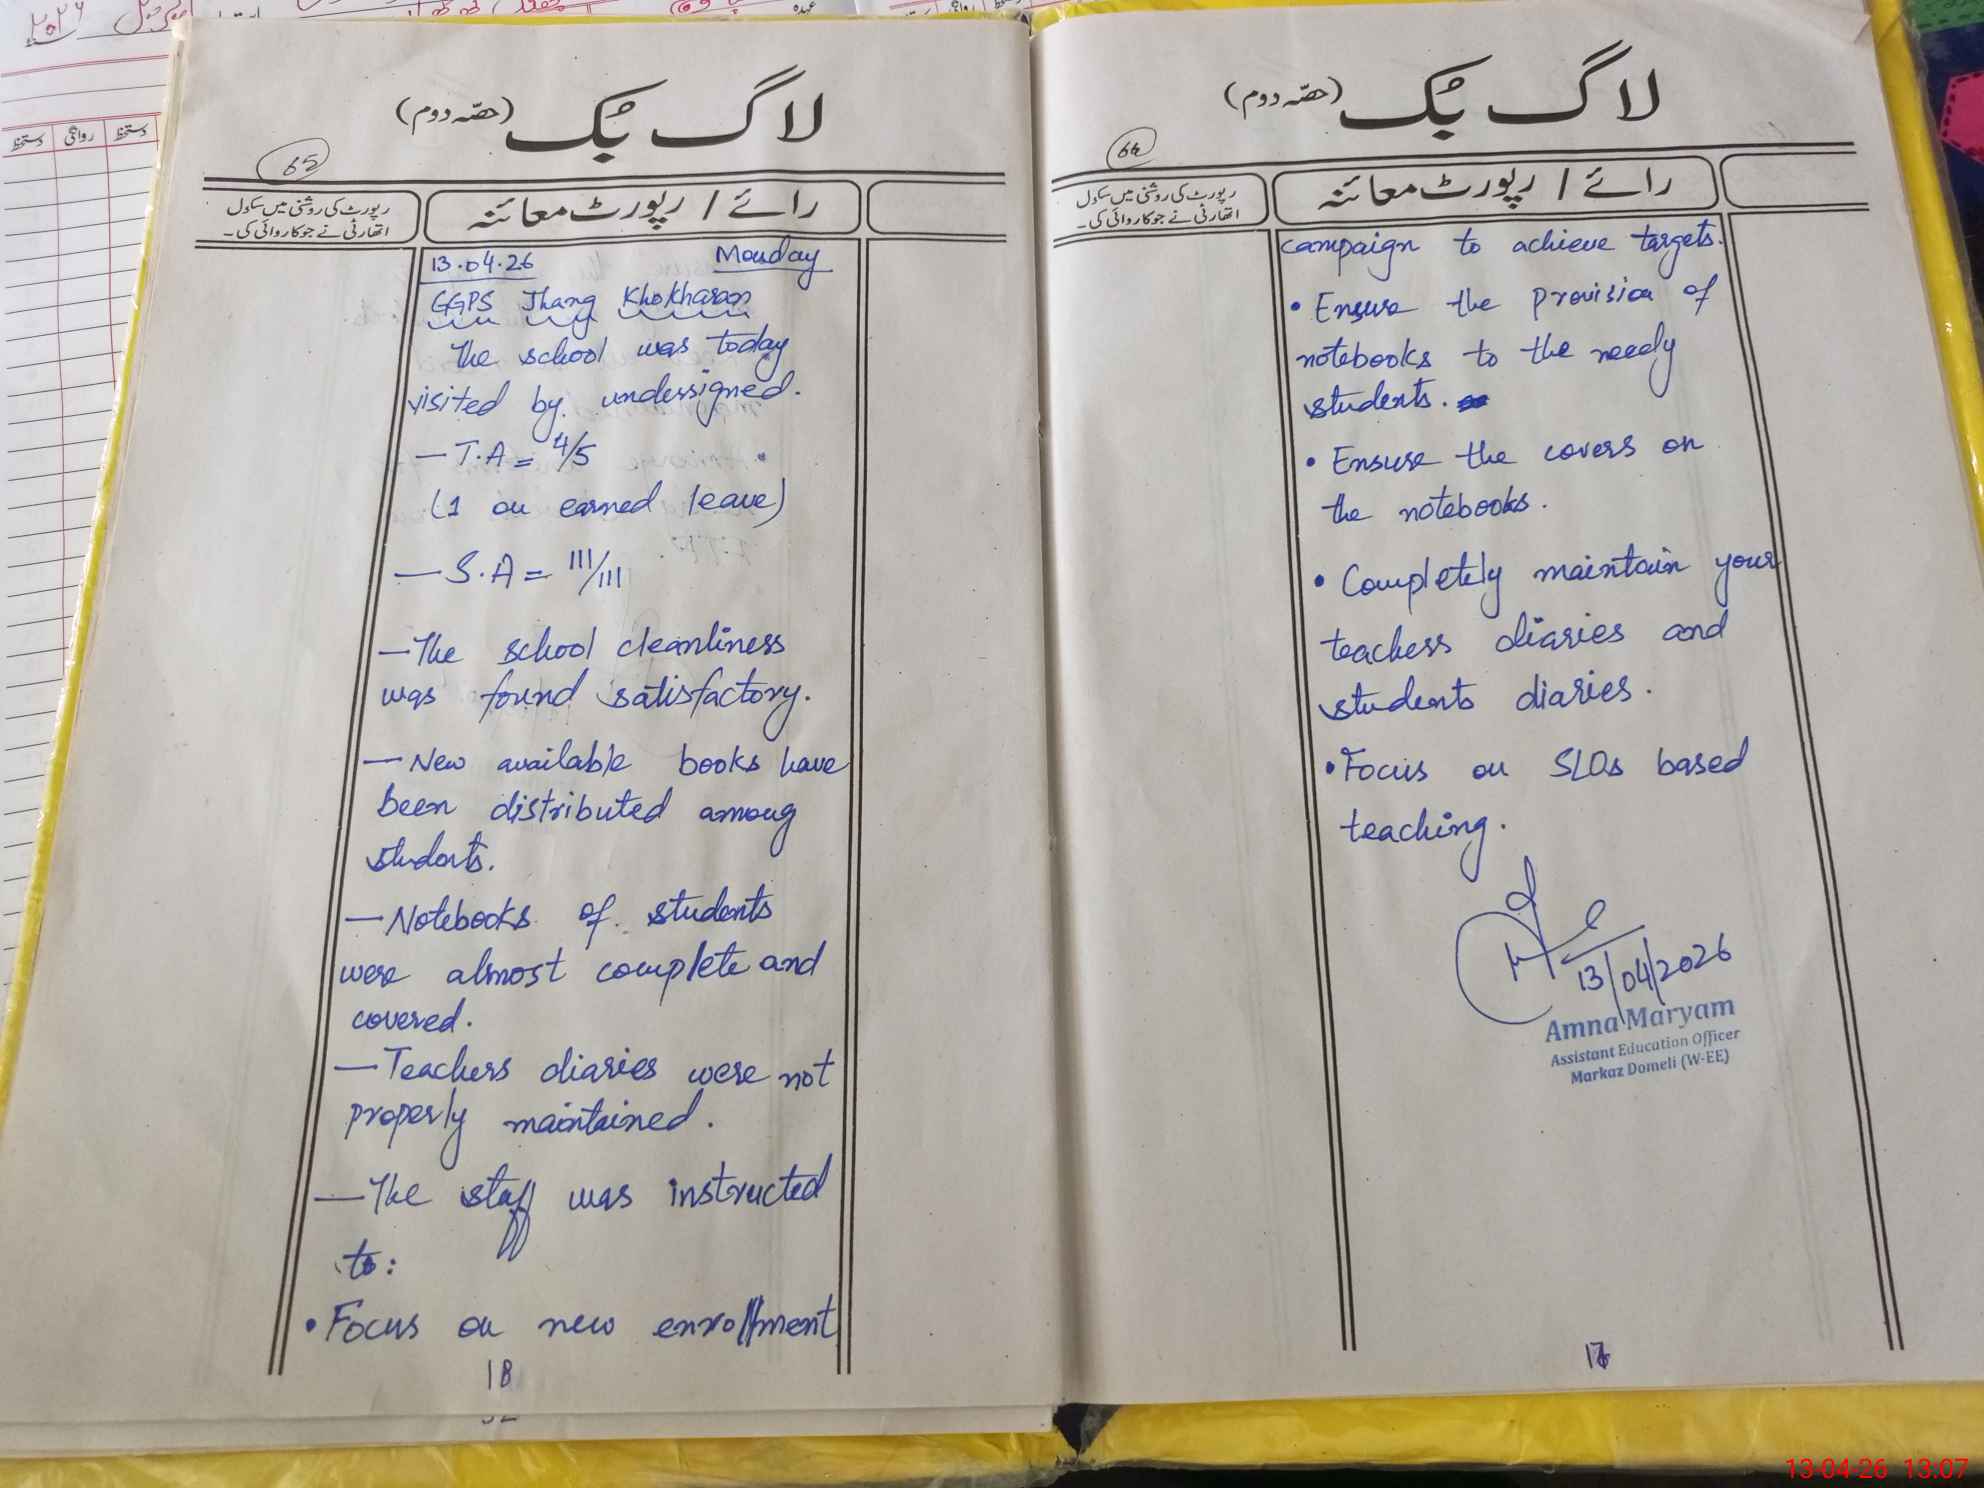 لاگ بُک (حصّہ دوم)
65
رپورٹ کی روشنی میں سکول
اتھارٹی نے جو کاروائی کی۔
رائے / رپورٹ معائنہ
13.04.26 Monday
GGPS Jhang Khokharan
The school was today
visited by undersigned.
— T.A = 4/5
(1 on earned leave)
— S.A = 111/111
— The school cleanliness
was found satisfactory.
— New available books have
been distributed among
students.
— Notebooks of students
were almost complete and
covered.
— Teachers diaries were not
properly maintained.
— The staff was instructed
to:
• Focus on new enrollment
18
لاگ بُک (حصّہ دوم)
64
رپورٹ کی روشنی میں سکول
اتھارٹی نے جو کاروائی کی۔
رائے / رپورٹ معائنہ
campaign to achieve targets.
• Ensure the provision of
notebooks to the needy
students.
• Ensure the covers on
the notebooks.
• Completely maintain your
teachers diaries and
students diaries.
• Focus on SLOs based
teaching.
13/04/2026
Amna Maryam
Assistant Education Officer
Markaz Domeli (W-EE)
دستخط
روانگی
دستخط
13-04-26 13:07